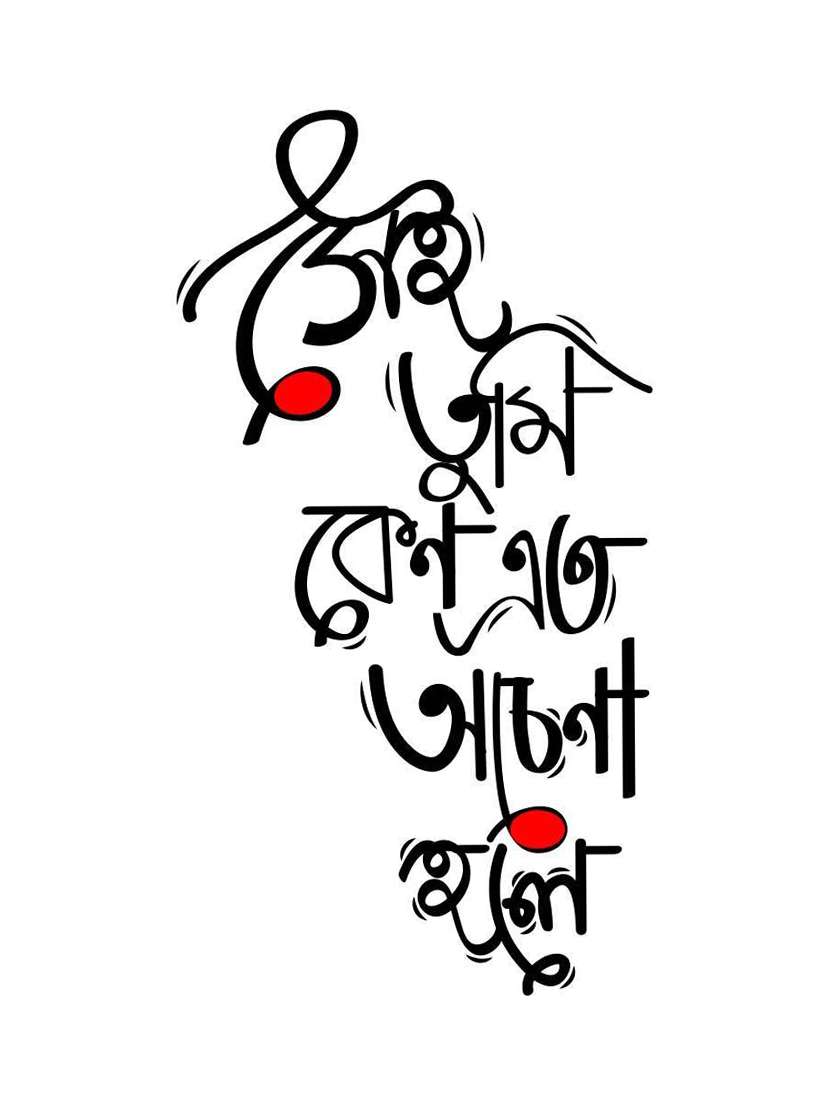 সেই
তুমি
কেন এত
অচেনা
হলে